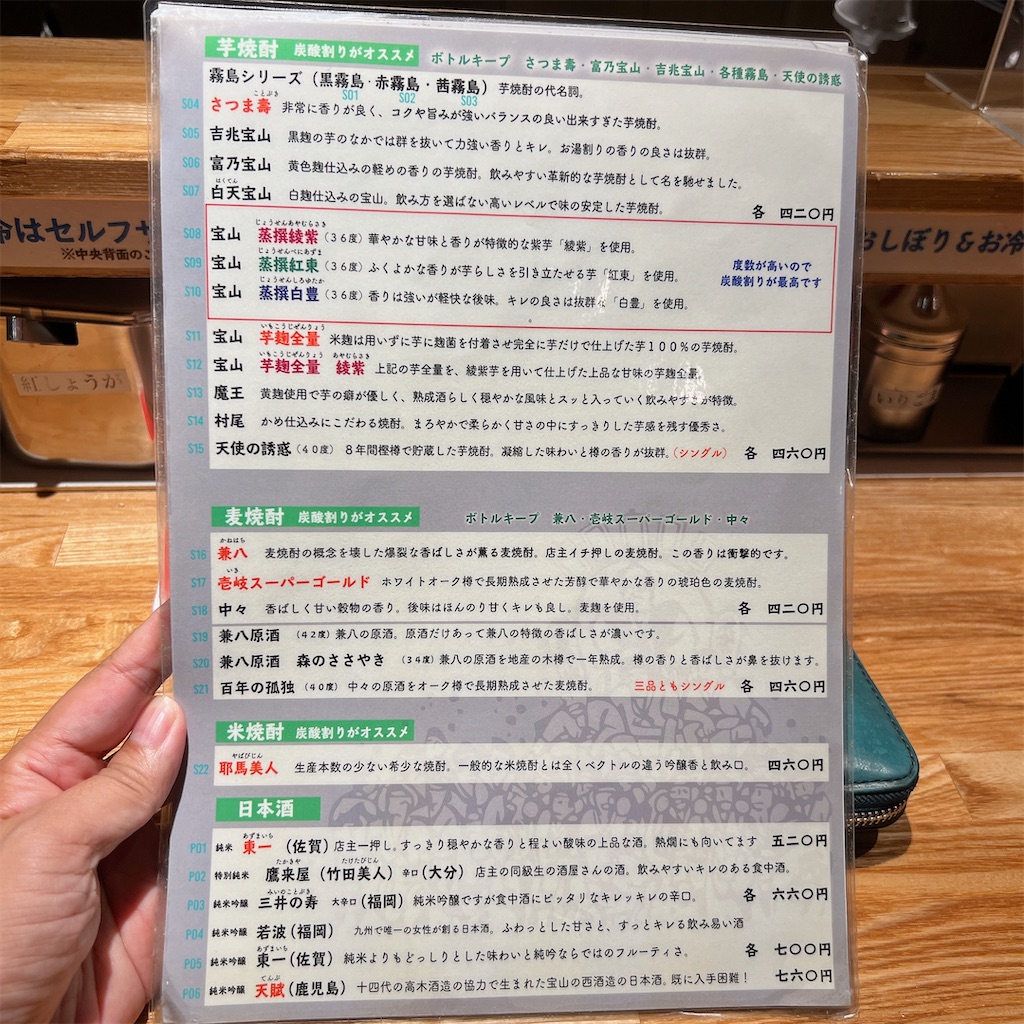 芋焼酎 炭酸割りがオススメ ボトルキープ さつま壽・富乃宝山・吉兆宝山・各種霧島・天使の誘惑
霧島シリーズ（黒霧島・赤霧島・茜霧島）芋焼酎の代名詞。
S01 S02 S03
ことぶき
S04 さつま壽 非常に香りが良く、コクや旨みが強いバランスの良い出来すぎた芋焼酎。
S05 吉兆宝山 黒麹の芋のなかでは群を抜いて力強い香りとキレ。お湯割りの香りの良さは抜群。
S06 富乃宝山 黄色麹仕込みの軽めの香りの芋焼酎。飲みやすい革新的な芋焼酎として名を馳せました。
はくてん
S07 白天宝山 白麹仕込みの宝山。飲み方を選ばない高いレベルで味の安定した芋焼酎。 各 四二〇円
じょうせんあやむらさき
S08 宝山 蒸撰綾紫（３６度）華やかな甘味と香りが特徴的な紫芋「綾紫」を使用。
じょうせんべにあずま
S09 宝山 蒸撰紅東（３６度）ふくよかな香りが芋らしさを引き立たせる芋「紅東」を使用。
じょうせんしろゆたか
S10 宝山 蒸撰白豊（３６度）香りは強いが軽快な後味。キレの良さは抜群な「白豊」を使用。
度数が高いので
炭酸割りが最高です
いもこうじぜんりょう
S11 宝山 芋麹全量 米麹は用いずに芋に麹菌を付着させ完全に芋だけで仕上げた芋１００％の芋焼酎。
いもこうじぜんりょう あやむらさき
S12 宝山 芋麹全量 綾紫 上記の芋全量を、綾紫芋を用いて仕上げた上品な甘味の芋麹全量
S13 魔王 黄麹使用で芋の癖が優しく、熟成酒らしく穏やかな風味とスッと入っていく飲みやすさが特徴。
S14 村尾 かめ仕込みにこだわる焼酎。まろやかで柔らかく甘さの中にすっきりした芋感を残す優秀さ。
S15 天使の誘惑（４０度）８年間樫樽で貯蔵した芋焼酎。凝縮した味わいと樽の香りが抜群。（シングル） 各 四六〇円
麦焼酎 炭酸割りがオススメ ボトルキープ 兼八・壱岐スーパーゴールド・中々
かねはち
S16 兼八 麦焼酎の概念を壊した爆裂な香ばしさが薫る麦焼酎。店主イチ押しの麦焼酎。この香りは衝撃的です。
いき
S17 壱岐スーパーゴールド ホワイトオーク樽で長期熟成させた芳醇で華やかな香りの琥珀色の麦焼酎。
S18 中々 香ばしく甘い穀物の香り。後味はほんのり甘くキレも良し。麦麹を使用。 各 四二〇円
S19 兼八原酒 （４２度）兼八の原酒。原酒だけあって兼八の特徴の香ばしさが濃いです。
S20 兼八原酒 森のささやき （３４度）兼八の原酒を地産の木樽で一年熟成。樽の香りと香ばしさが鼻を抜けます。
S21 百年の孤独 （４０度） 中々の原酒をオーク樽で長期熟成させた麦焼酎。 三品ともシングル 各 四六〇円
米焼酎 炭酸割りがオススメ
やばびじん
S22 耶馬美人 生産本数の少ない希少な焼酎。一般的な米焼酎とは全くベクトルの違う吟醸香と飲み口。 四六〇円
日本酒
あずまいち
P01 純米 東一 （佐賀）店主一押し。すっきり穏やかな香りと程よい酸味の上品な酒。熱燗にも向いてます 五二〇円
たかきや たけたびじん
P02 特別純米 鷹来屋（竹田美人）辛口（大分） 店主の同級生の酒屋さんの酒。飲みやすいキレのある食中酒。
みいのことぶき
P03 純米吟醸 三井の寿 大辛口（福岡） 純米吟醸ですが食中酒にピッタリなキレッキレの辛口。 各 六六〇円
P04 純米吟醸 若波（福岡） 九州で唯一の女性が創る日本酒。ふわっとした甘さと、すっとキレる飲み易い酒
あずまいち
P05 純米吟醸 東一（佐賀） 純米よりもどっしりとした味わいと純吟ならではのフルーティさ。 各 七〇〇円
てんぶ
P06 純米吟醸 天賦（鹿児島） 十四代の高木酒造の協力で生まれた宝山の西酒造の日本酒。既に入手困難！ 七六〇円
冷はセルフサ
※中央背面のご
紅しょうが
おしぼり＆お冷
いりごま